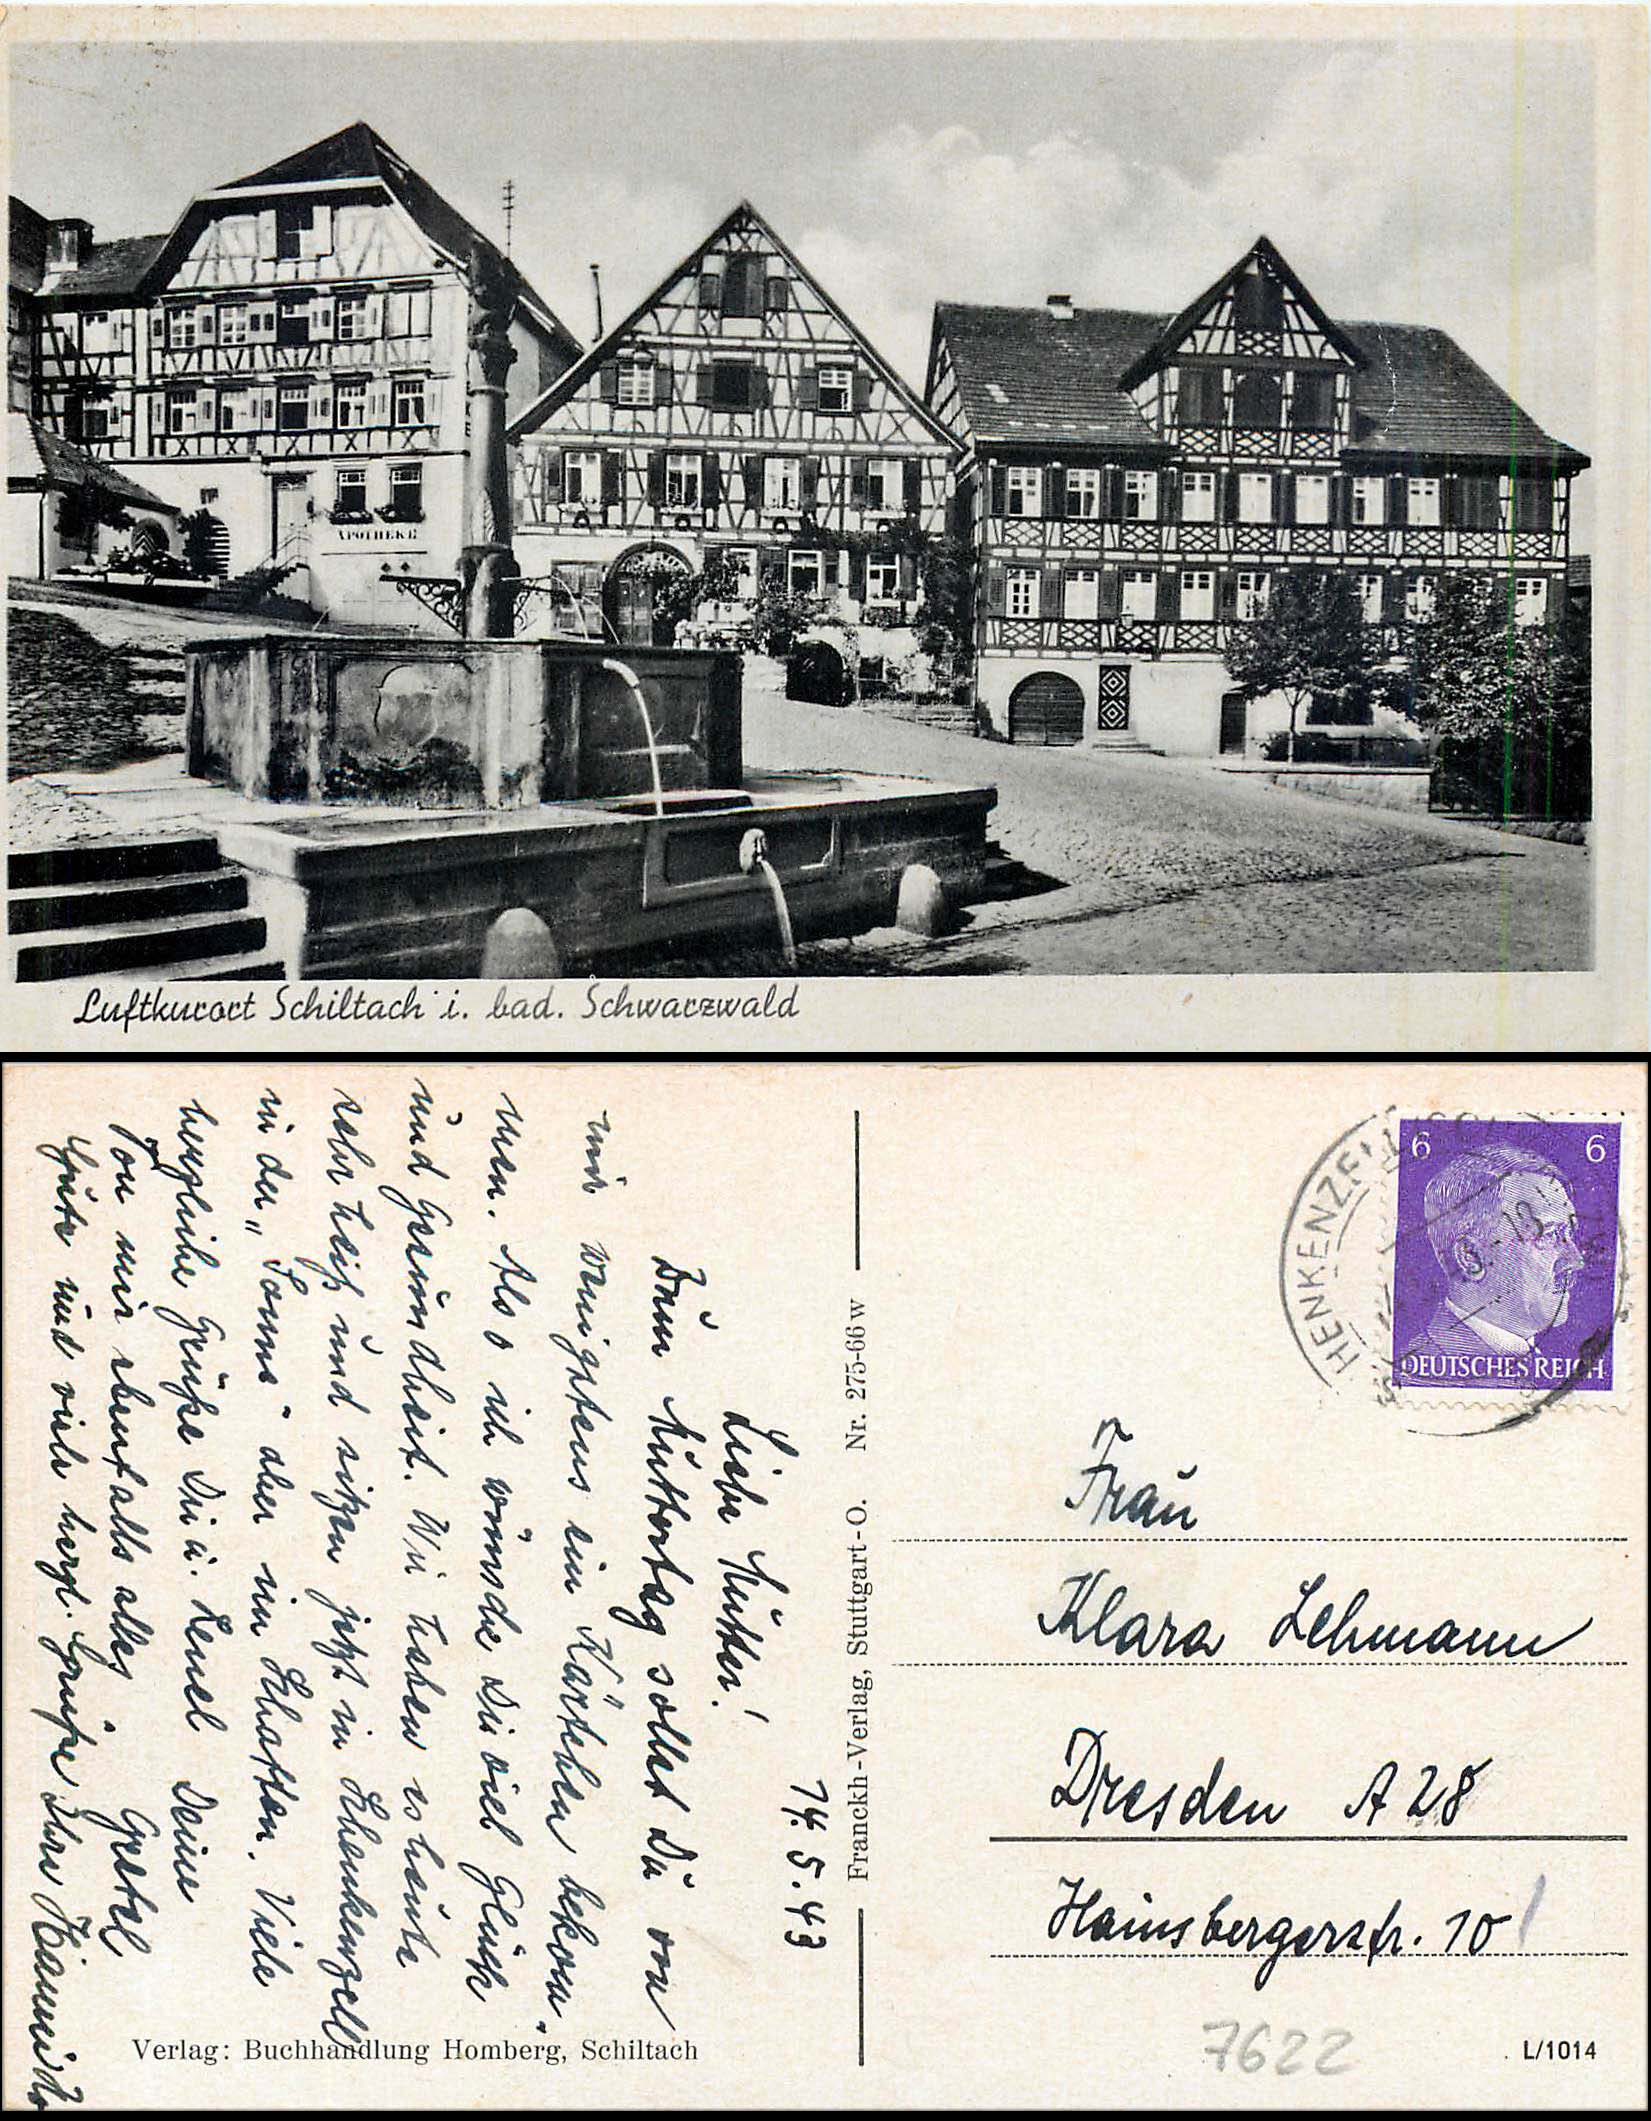 APOTHEKE
Luftkurort Schiltach i. bad. Schwarzwald
14. 5. 43
Liebe Mutter!
Zum Muttertag sollst Du von
mir wenigstens ein Kärtchen bekom-
men. Also ich wünsche Dir viel Glück
und Gesundheit. Wir haben es heute
sehr heiß und sitzen jetzt in Schenkenzell
in der „Sonne“ aber im Schatten. Viele
herzliche Grüße Dir u. Deine
Gretel
Von mir ebenfalls alles
Gute und viele herzl. Grüße Ihre
Franckh-Verlag, Stuttgart-O. Nr. 275-66 w
6 6
DEUTSCHES REICH
Frau
Klara Lehmann
Dresden A 28
Hainsbergerstr. 10
7622
Verlag: Buchhandlung Homberg, Schiltach
L/1014